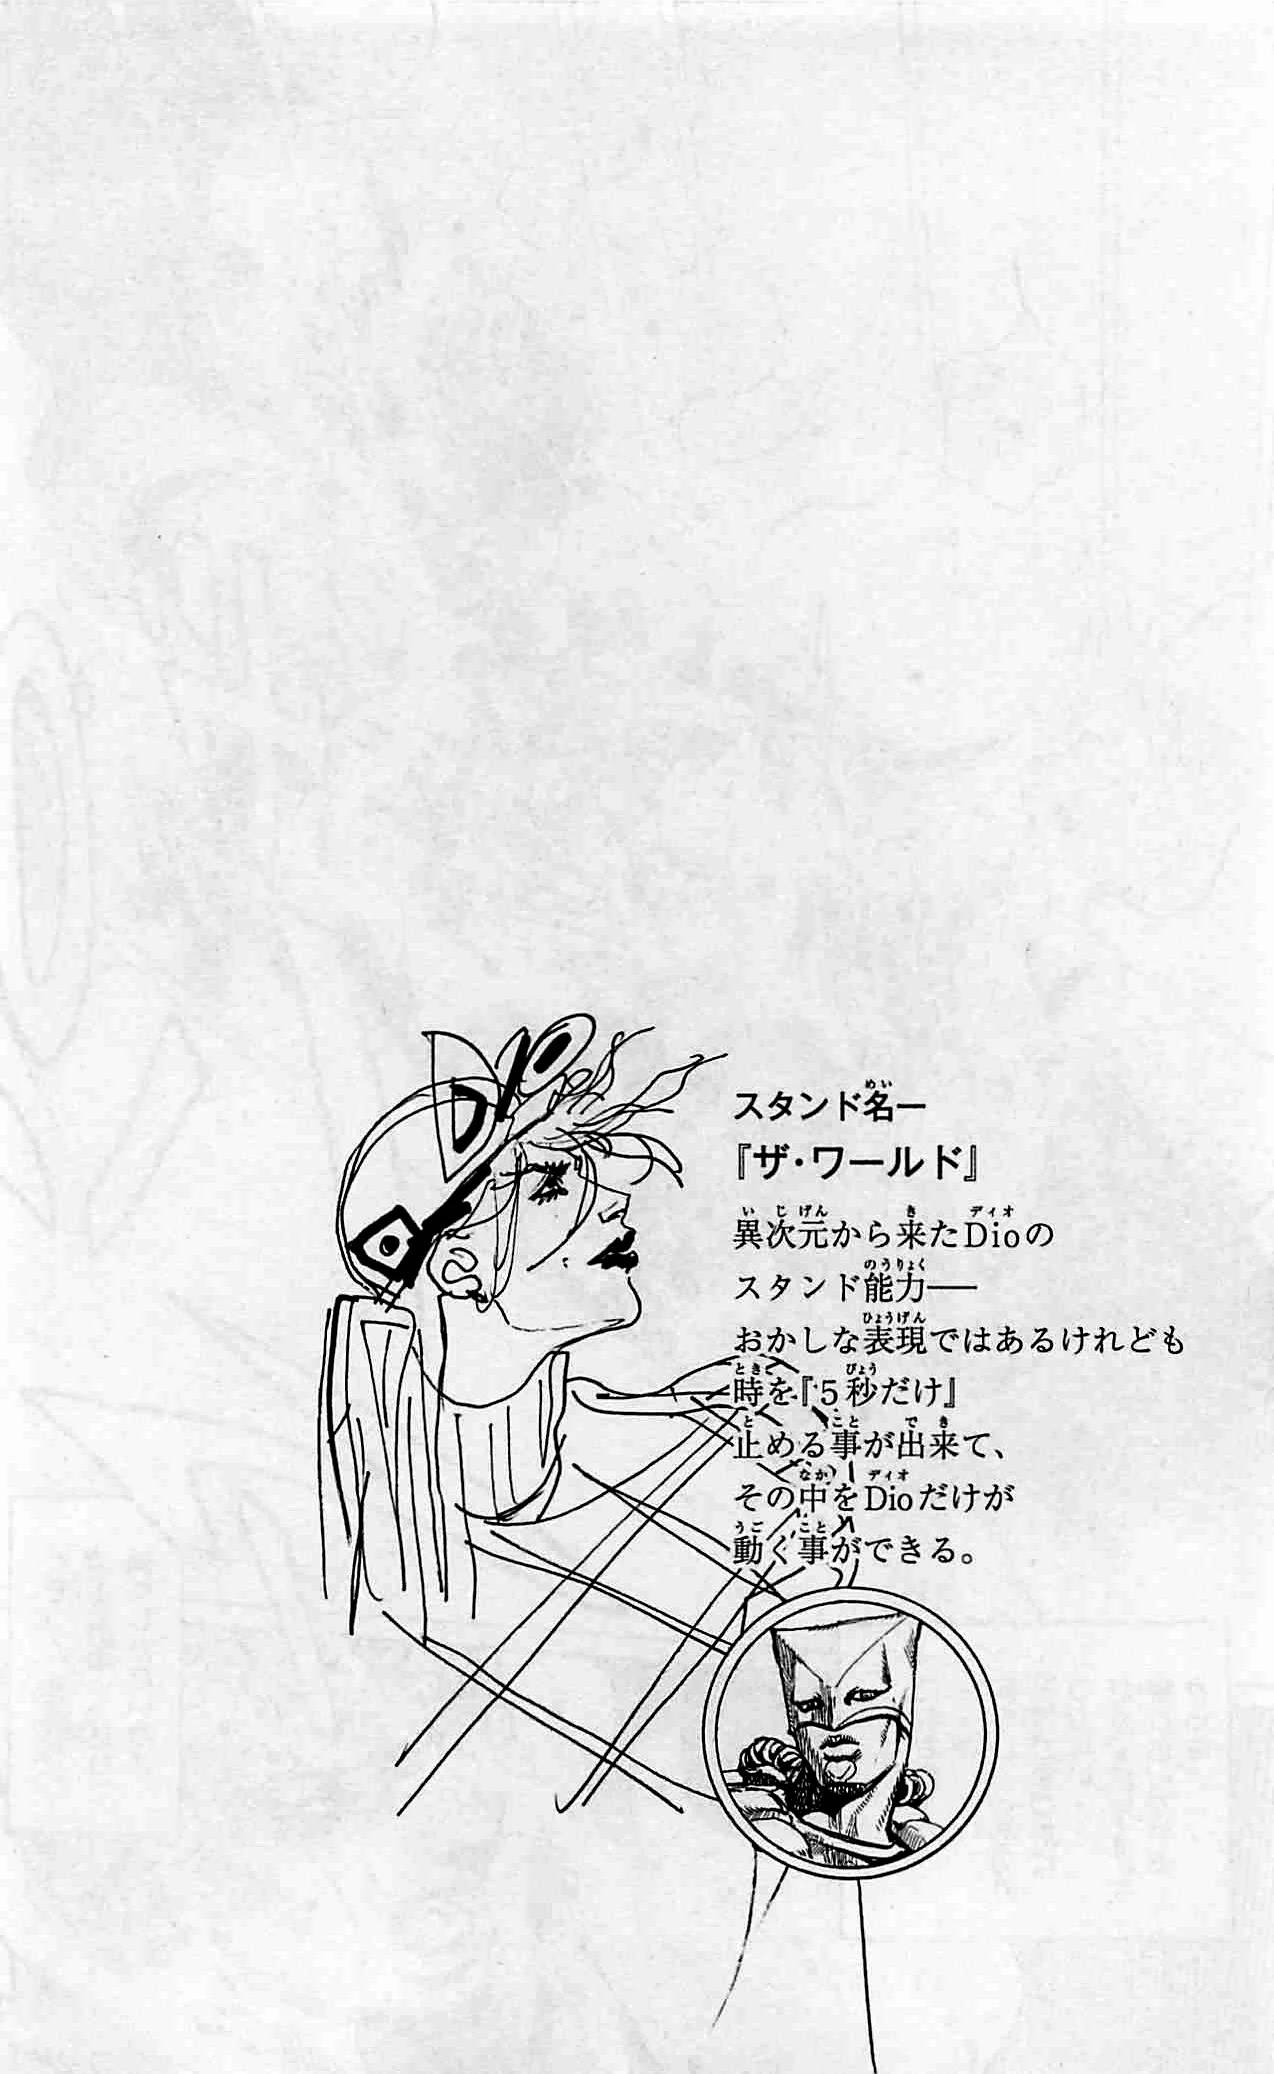 DIO
スタンド名ー
『ザ・ワールド』
異次元から来たDioの
スタンド能力――
おかしな表現ではあるけれども
時を『5秒だけ』
止める事が出来て、
その中をDioだけが
動く事ができる。